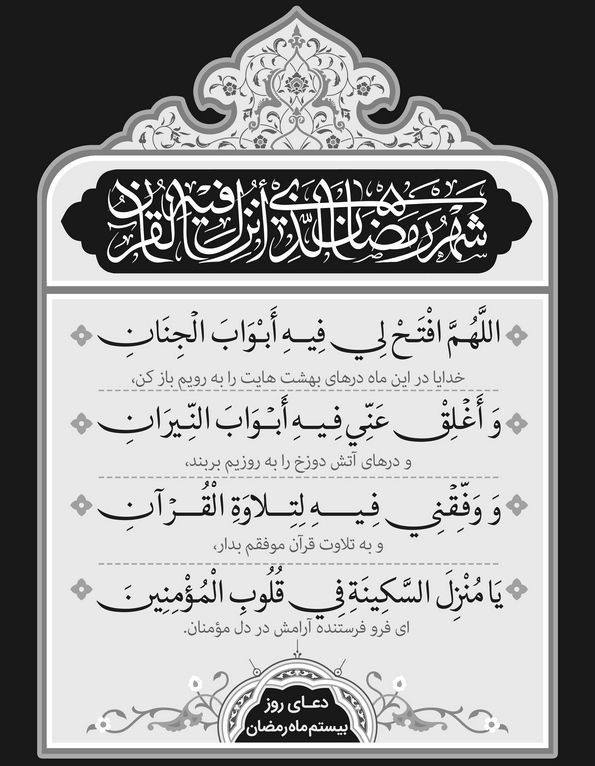 شَهْرُ رَمَضَانَ الَّذِي أُنْزِلَ فِيهِ الْقُرْآنُ
اللَّهُمَّ افْتَحْ لِي فِيهِ أَبْوَابَ الْجِنَانِ
خدایا در این ماه درهای بهشت هایت را به رویم باز کن،
وَ أَغْلِقْ عَنِّي فِيهِ أَبْوَابَ النِّيرَانِ
و درهای آتش دوزخ را به روزیم بربند،
وَ وَفِّقْنِي فِيهِ لِتِلاوَةِ الْقُرْآنِ
و به تلاوت قرآن موفقم بدار،
يَا مُنْزِلَ السَّكِينَةِ فِي قُلُوبِ الْمُؤْمِنِينَ
ای فرو فرستنده آرامش در دل مؤمنان.
دعای روز
بیستم ماه رمضان